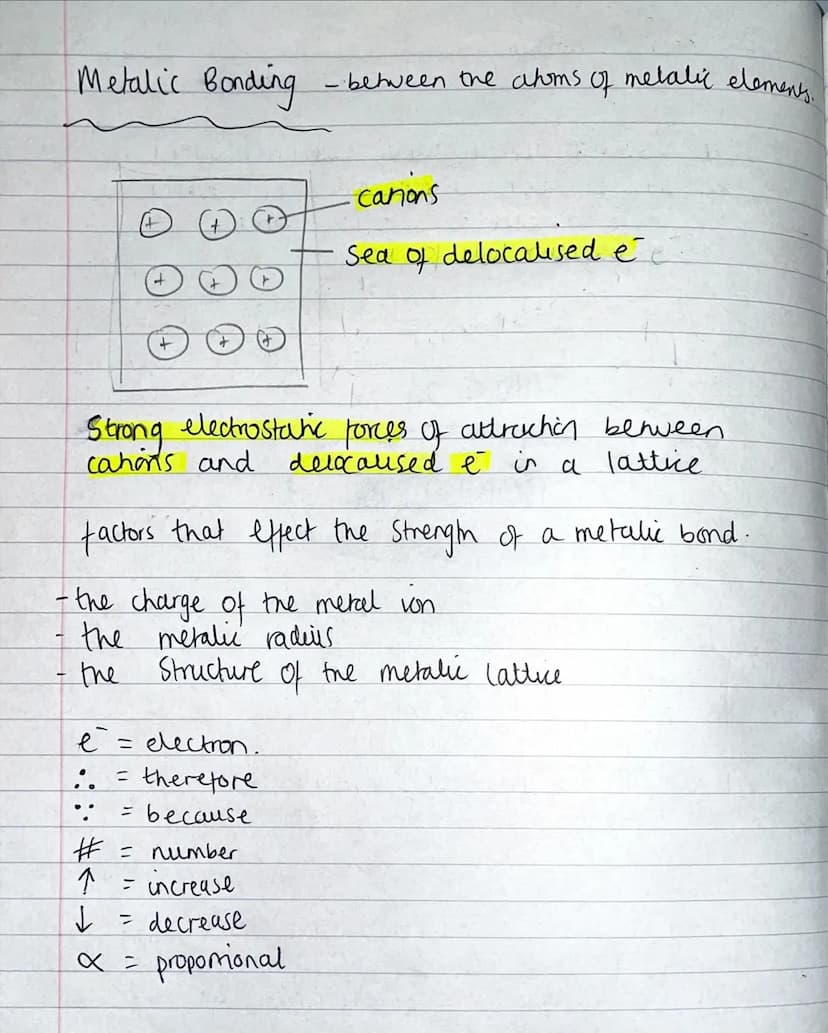 Metalic Bonding - between the atoms of metalic elements.
+ + + cations
sea of delocalised e⁻
+ + +
+ + +
Strong electrostatic forces of attraction between
cations and delocalised e⁻ in a lattice
factors that effect the strength of a metalic bond.
- the charge of the metal ion
- the metalic radius
- the structure of the metalic lattice
e⁻ = electron.
∴ = therefore
∵ = because
# = number
↑ = increase
↓ = decrease
∝ = proportional